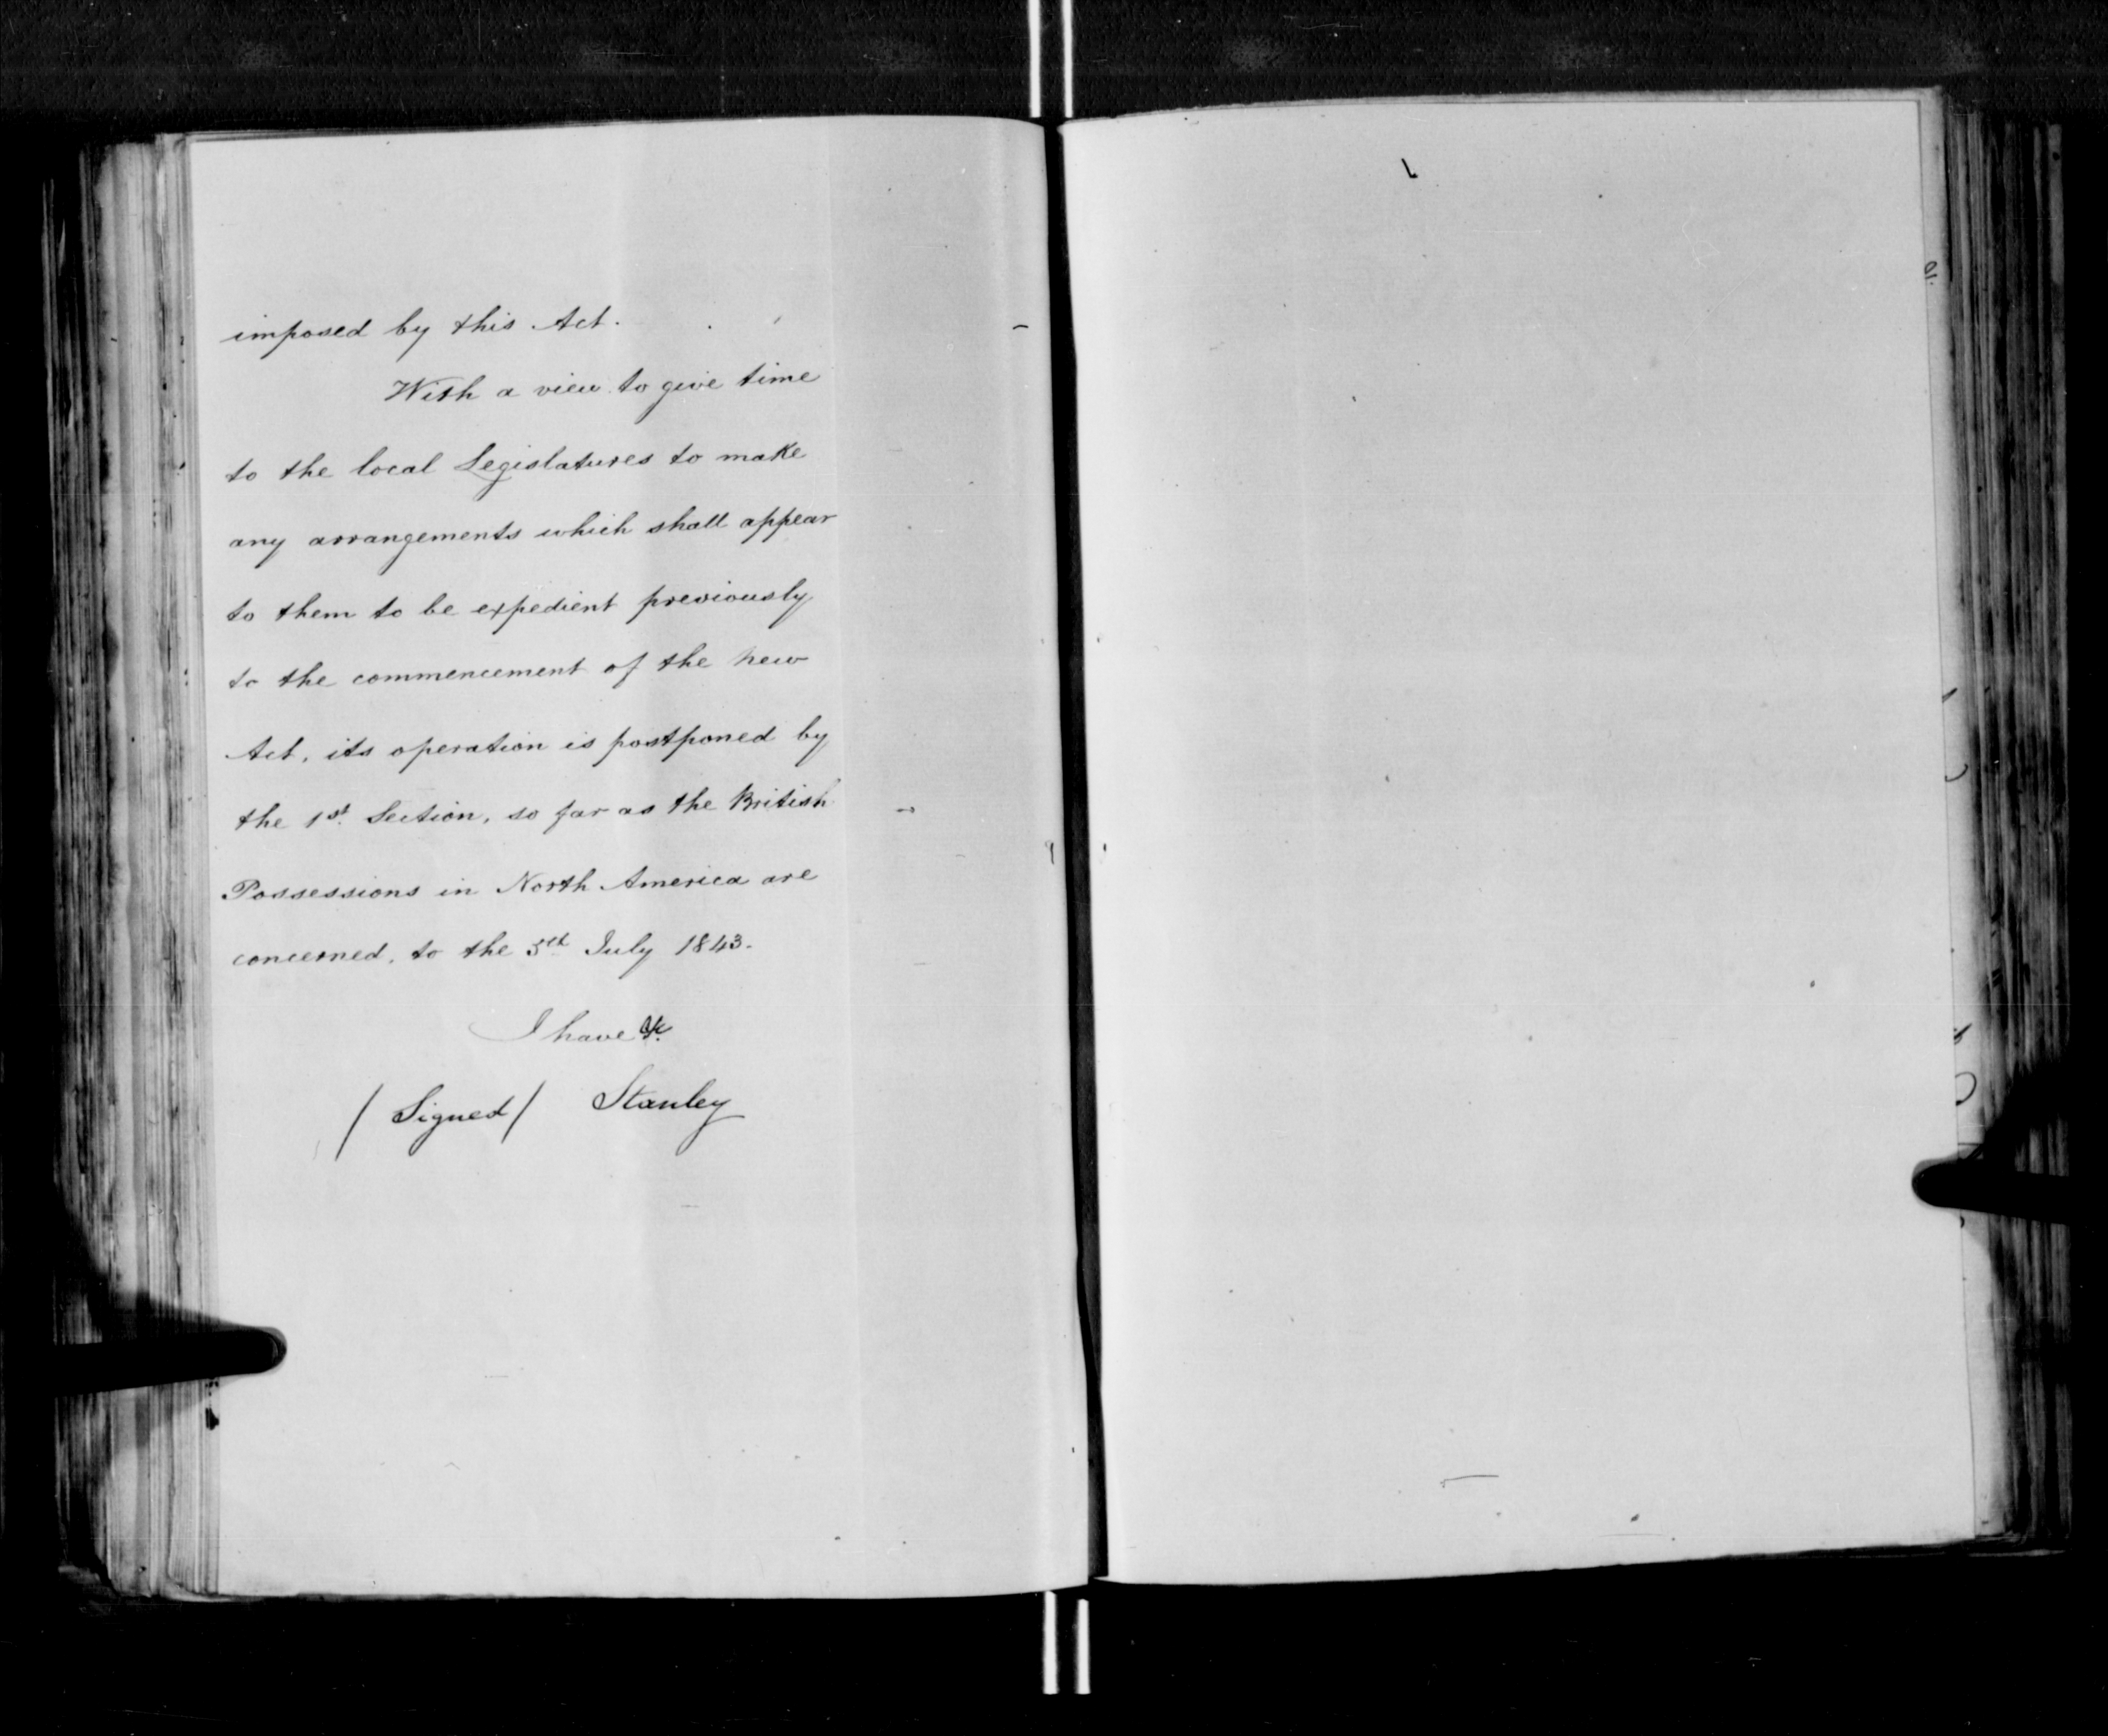 imposed by this Act.
With a view to give time
to the local Legislatures to make
any arrangements which shall appear
to them to be expedient previously
to the commencement of the new
Act, its operation is postponed by
the 1st. Section, so far as the British
Possessions in North America are
concerned, to the 5th July 1843.
I have &c.
/Signed/ Stanley